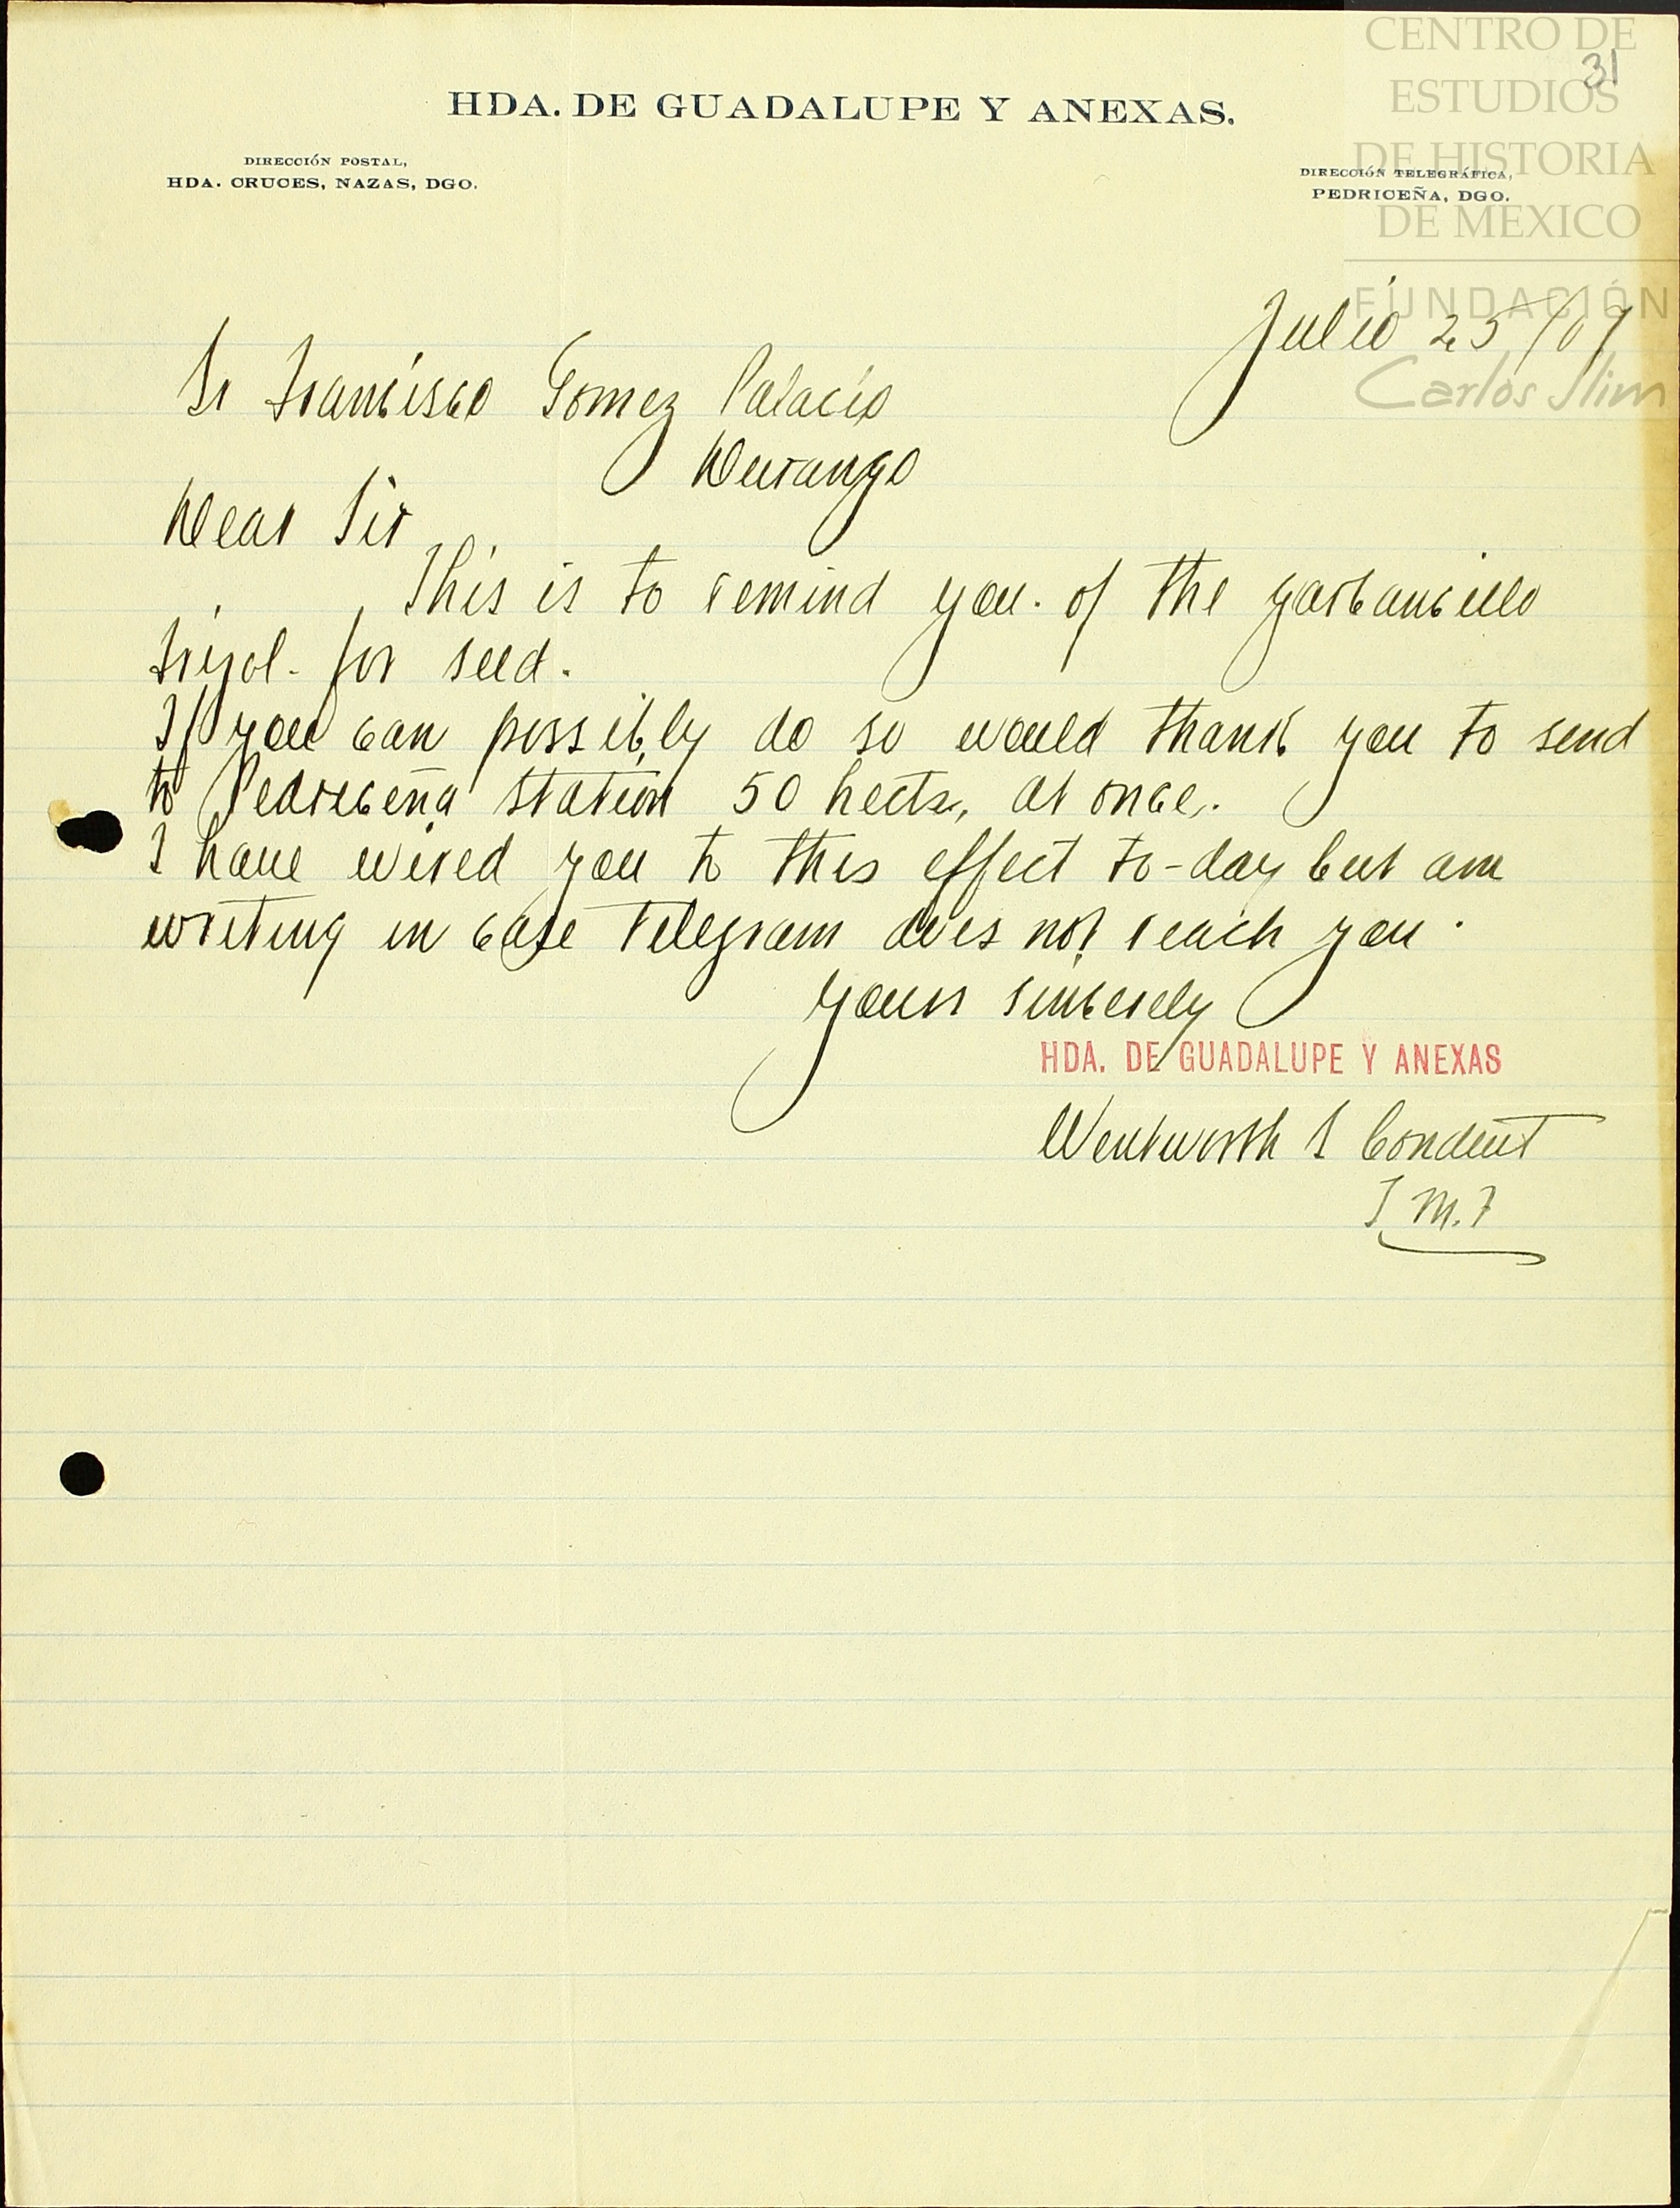 CENTRO DE
ESTUDIOS
DE HISTORIA
DE MEXICO
FUNDACIÓN
Carlos Slim
31
HDA. DE GUADALUPE Y ANEXAS.
DIRECCIÓN POSTAL,
HDA. CRUCES, NAZAS, DGO.
DIRECCIÓN TELEGRÁFICA,
PEDRICEÑA, DGO.
Julio 25/09
Sr Francisco Gomez Palacio
Durango
Dear Sir
This is to remind you. of the garbancillo
frijol - for seed.
If you can possibly do so would thank you to send
to Pedriceña station 50 hects, at once.
I have wired you to this effect to-day but am
writing in case telegram does not reach you.
Yours sincerely
HDA. DE GUADALUPE Y ANEXAS
Wentworth S Conduit